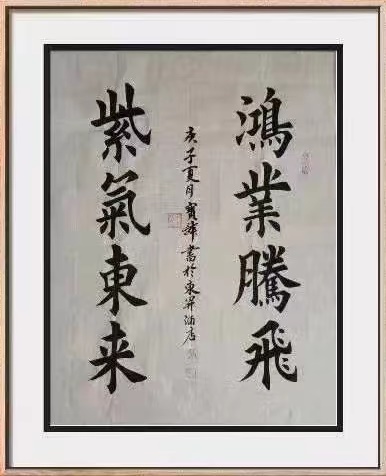 鴻業騰飛
庚子夏月寶書於東昇酒店
紫氣東来